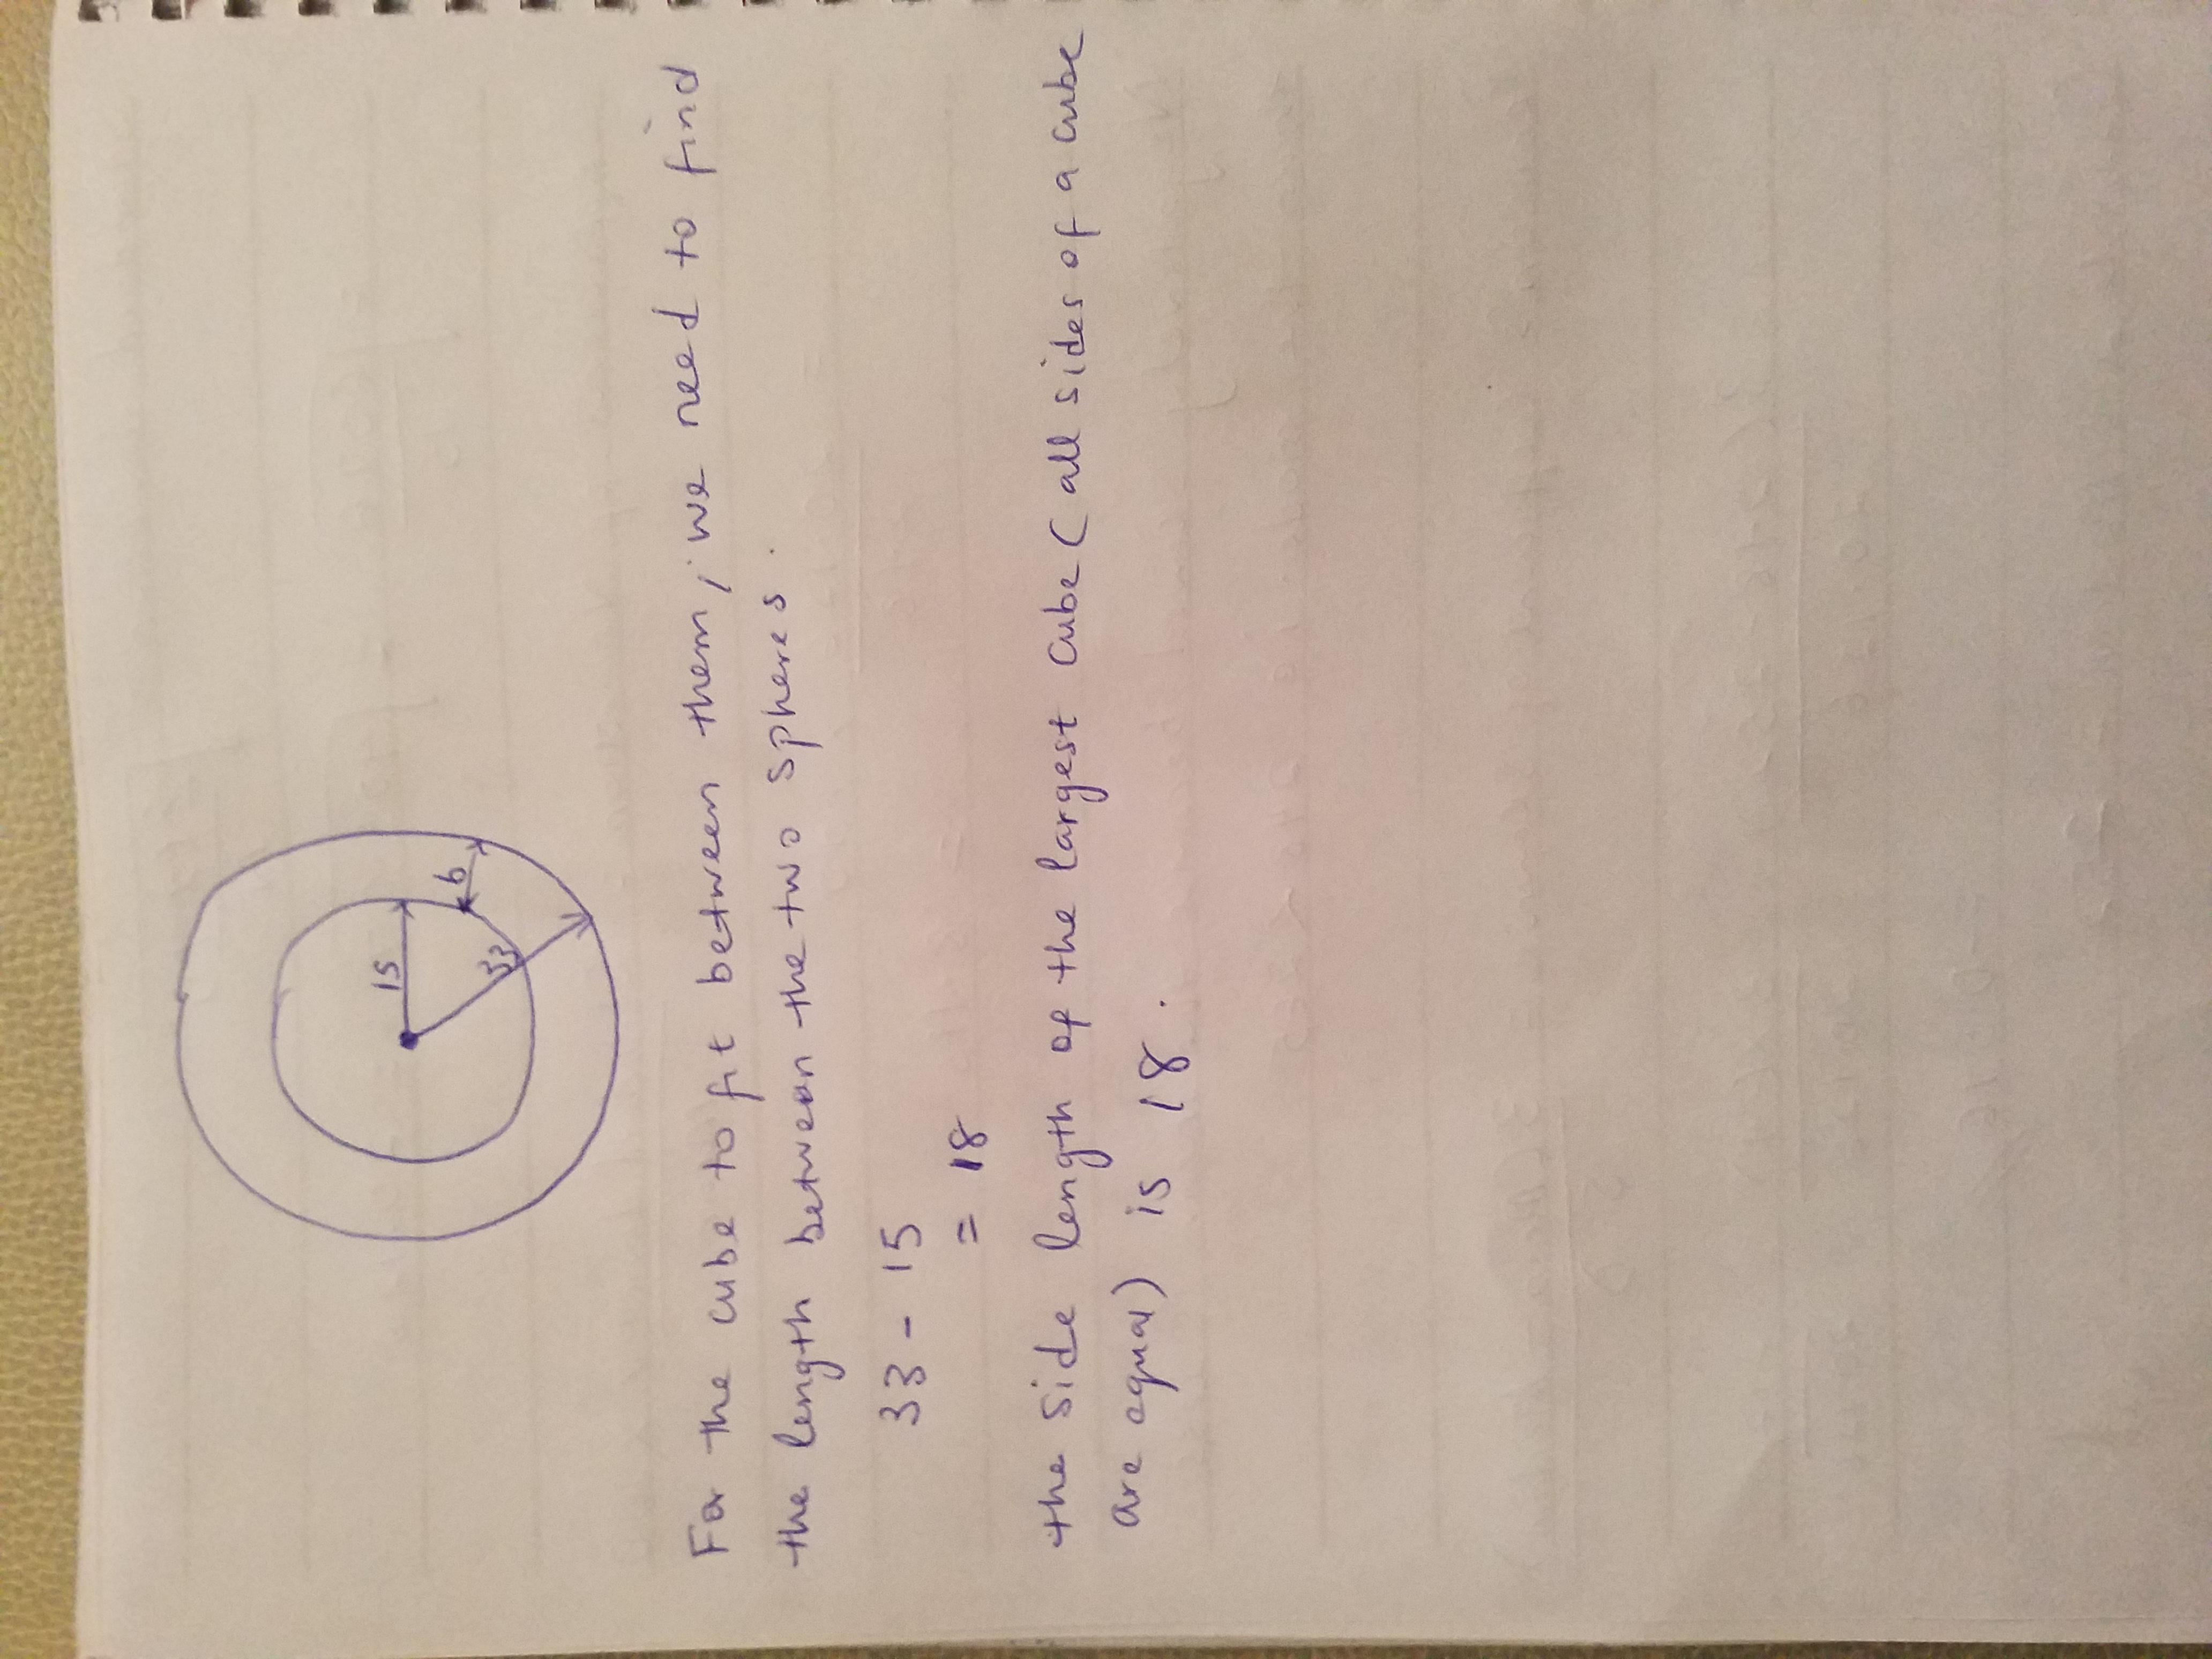 15
b
33
For the cube to fit between them, we need to find
the length between the two spheres.
33 - 15
= 18
the side length of the largest cube (all sides of a cube
are equal) is 18.